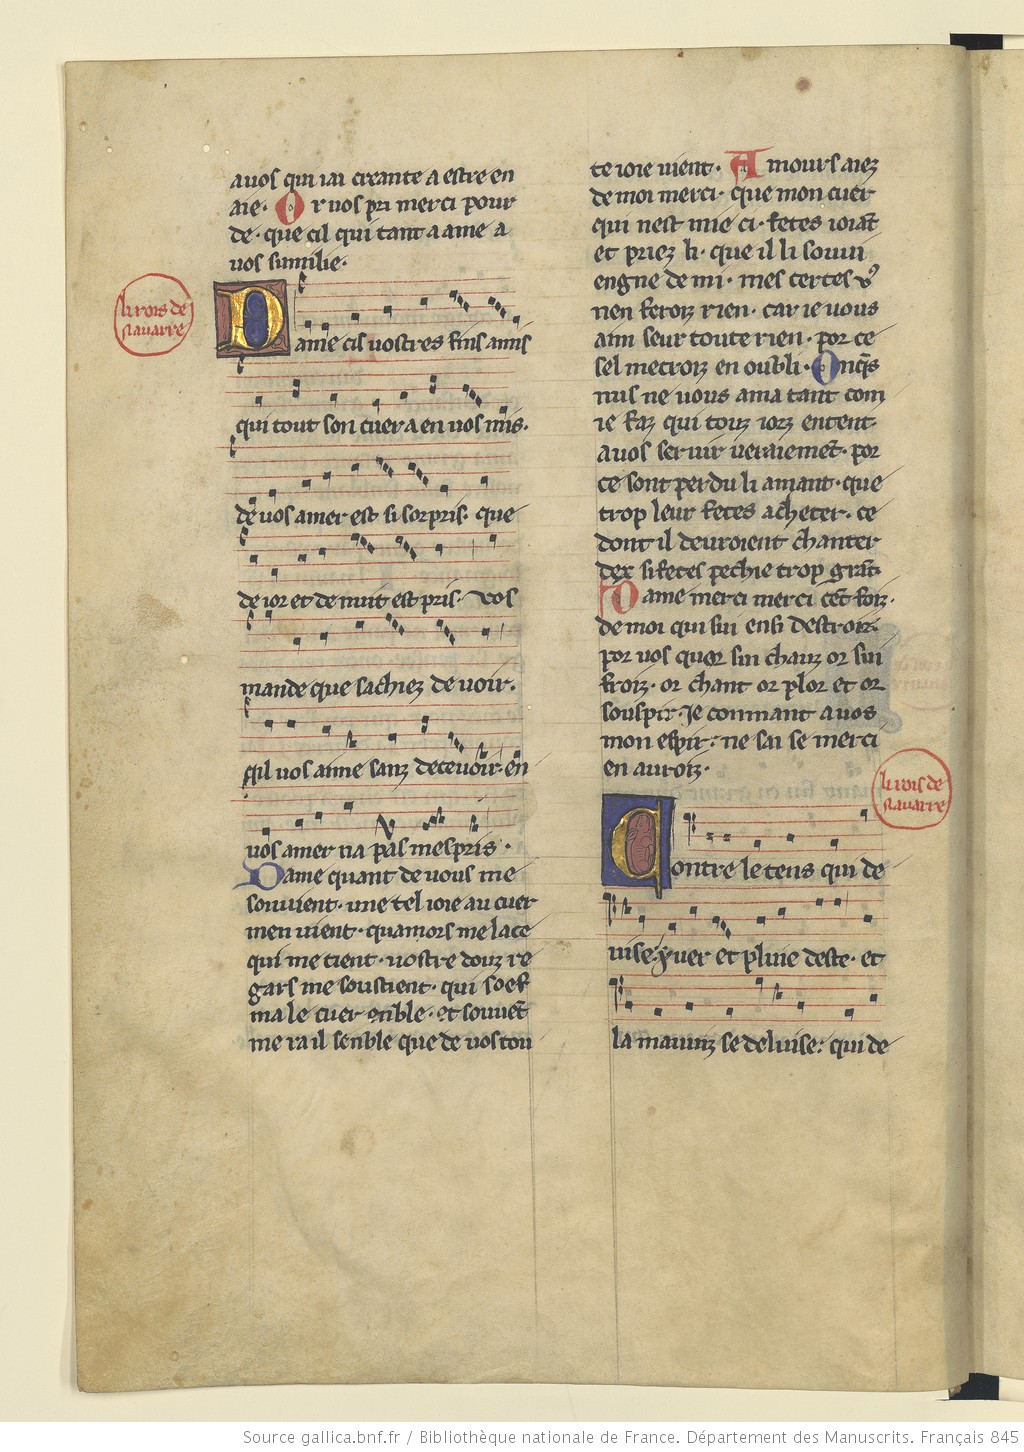 avos qui iai creante a estre en
aie. Or vos pri merci pour
de. que cil qui tant a ame a
vos sumilie.
li rois de
navarre
Dame cis vostres fins amis
qui tout son cuer a en vos mis.
de vos amer est si sorpris. que
de ior et de nuit est pris. vos
mande que sachiez de voir.
qil vos aime sanz decevoir. en
vos amer na pas mespris.
Dame quant de vous me
souvient. une tel ioie au cuer
men vient. quamors me lace
qui me tient. vostre douz re
gars me soustient. qui soef
ma le cuer enble. et souvet
me ra il senble que de vos tou
te ioie vient. Amours aiez
de moi merci. que mon cuer
qui nest mie ci. fetes ioiāt
et priez li. que il li souvi
engne de mi. mes certes v9
nen feroiz rien. car ie vous
aim seur toute rien. por ce
sel metroiz en oubli. Onqs
nus ne vous ama tant com
ie faz qui touz iorz entent
avos servir veraiemēt. por
ce sont perdu li amant. que
trop leur fetes acheter. ce
dont il devroient chanter
dex si fetes pechie trop grāt.
Dame merci merci cēt foiz.
de moi qui sui ensi destroiz.
por vos quor sui chauz or sui
froiz. or chant or plor et or
souspir. Je conmant avos
mon espir. ne sai se merci
en auroiz.
li rois de
navarre
Contre le tens qui de
vise. yver et pluie deste. et
la mauviz se debrise. qui de
Source gallica.bnf.fr / Bibliothèque nationale de France. Département des Manuscrits. Français 845